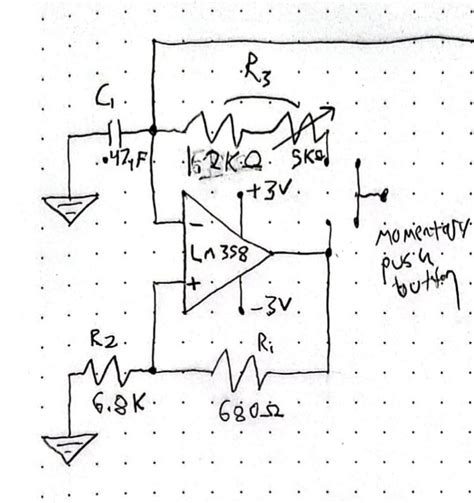 R3
C1
.47µF
KΩ
5KΩ
+3V
-
LM358
+
-3V
Momentary
push
button
R2
R1
6.8K
680Ω